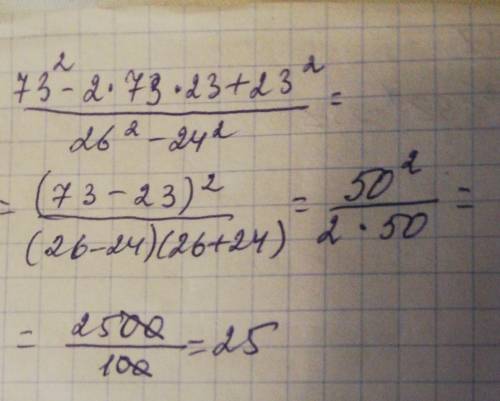 73² - 2 · 73 · 23 + 23² / 26² - 24² =
= (73 - 23)² / (26 - 24)(26 + 24) = 50² / 2 · 50 =
= 2500 / 100 = 25